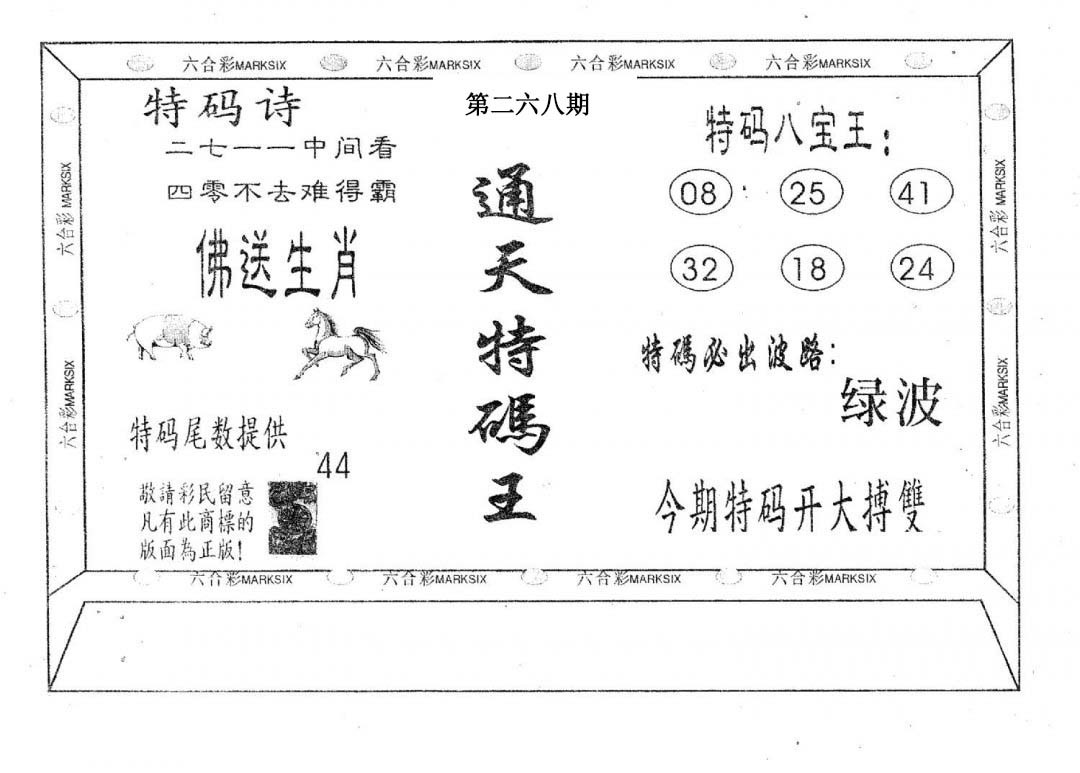 六合彩MARKSIX 六合彩MARKSIX 六合彩MARKSIX 六合彩MARKSIX
六合彩MARKSIX
六合彩MARKSIX
特码诗
二七一一中间看
四零不去难得霸
佛送生肖
特码尾数提供
44
敬請彩民留意
凡有此商標的
版面為正版!
第二六八期
通天特碼王
特码八宝王:
08 25 41
32 18 24
特碼必出波路:
绿波
今期特码开大搏雙
六合彩MARKSIX
六合彩MARKSIX
六合彩MARKSIX 六合彩MARKSIX 六合彩MARKSIX 六合彩MARKSIX